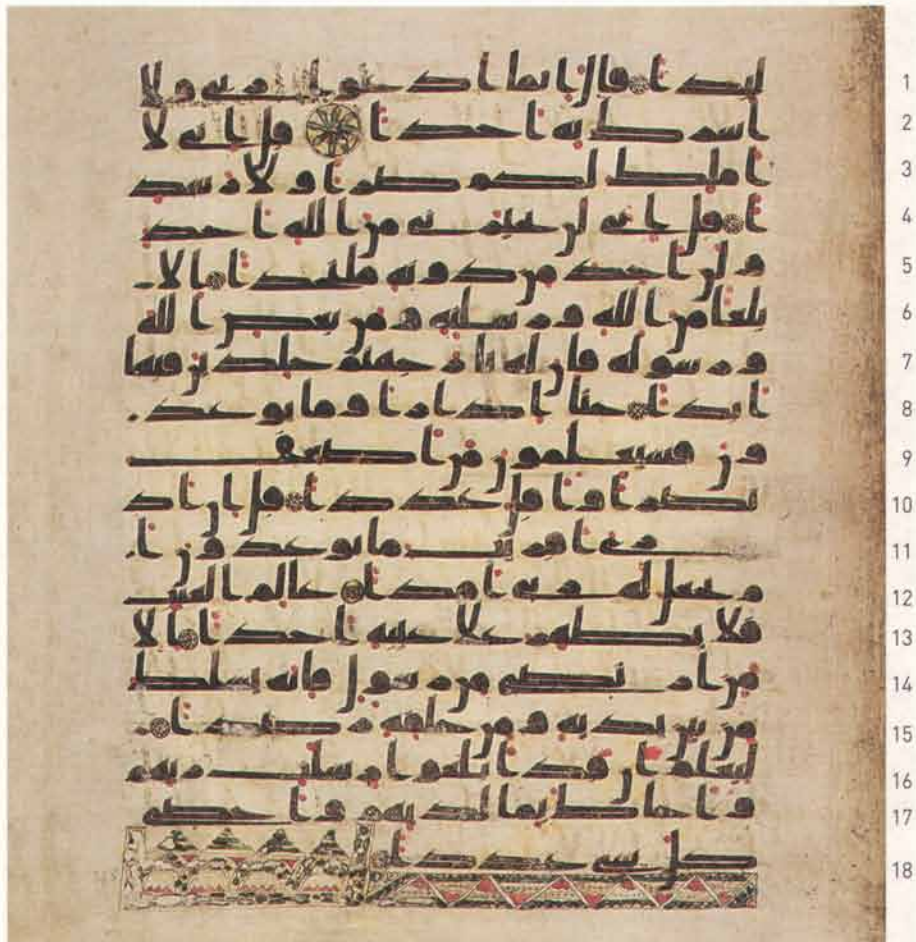 لبدا قال انما ادعوا ربي ولا 1
اشرك به احدا قل اني لا 2
املك لكم ضرا ولا رشد 3
ا قل اني لن يجيرني من الله احد 4
ولن اجد من دونه ملتحدا الا 5
بلغا من الله ورسلته ومن يعص الله 6
ورسوله فان له نار جهنم خلدين فيها 7
ابدا حتا اذا راوا ما يوعد 8
ون فسيعلمون من اضعف 9
نصرا واقل عددا قل ان اد 10
ري اقريب ما توعدون ا 11
م يجعل له ربي امدا عالم الغيب 12
فلا يظهر علا غيبه احدا الا 13
من ارتضى من رسول فانه يسلك 14
من بين يديه ومن خلفه رصدا 15
ليعلم ان قد ابلغوا رسلت ربهم 16
واحاط بما لديهم واحصى 17
كل شي عددا 18